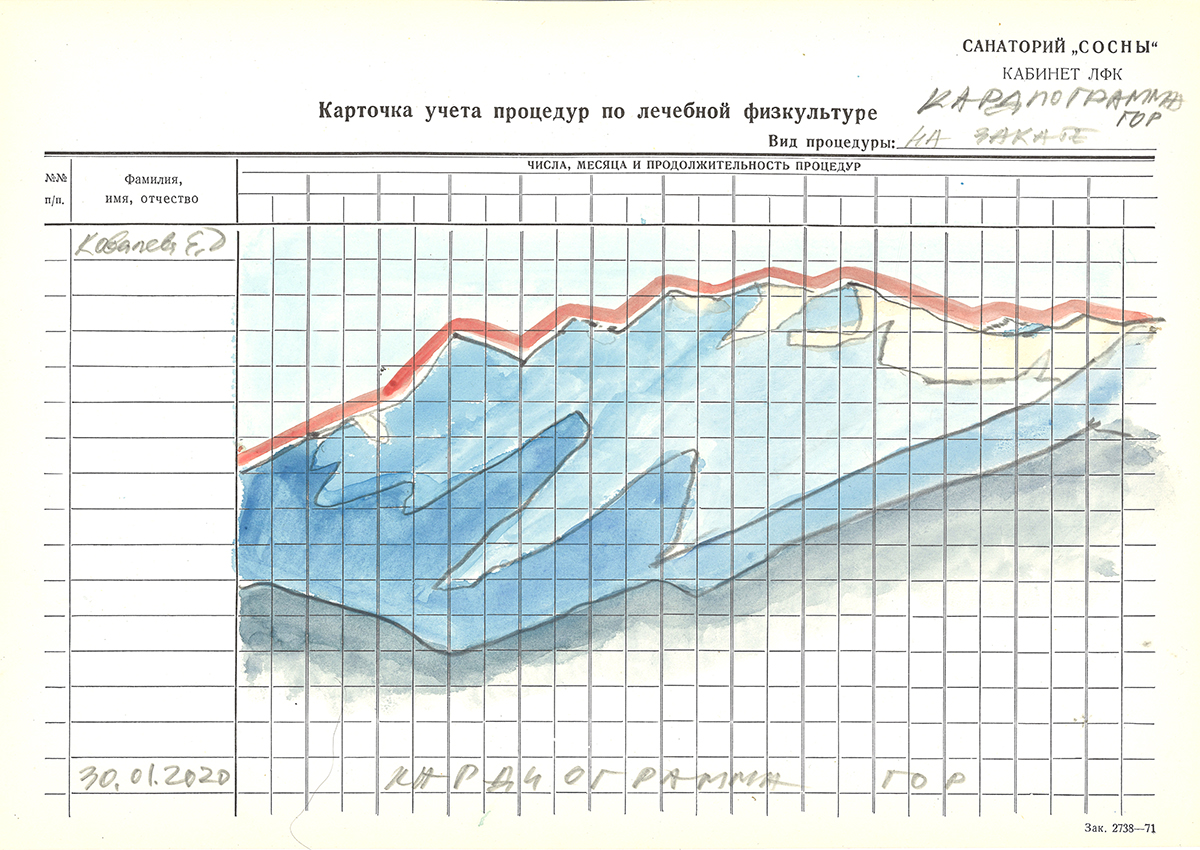 САНАТОРИЙ „СОСНЫ“
КАБИНЕТ ЛФК
Карточка учета процедур по лечебной физкультуре
КАРДИОГРАММА
ГОР
Вид процедуры: НА ЗАКАТЕ
№№
п/п.
Фамилия,
имя, отчество
ЧИСЛА, МЕСЯЦА И ПРОДОЛЖИТЕЛЬНОСТЬ ПРОЦЕДУР
Ковалев Е,D
30.01.2020
КАРДИОГРАММА ГОР
Зак. 2738—71